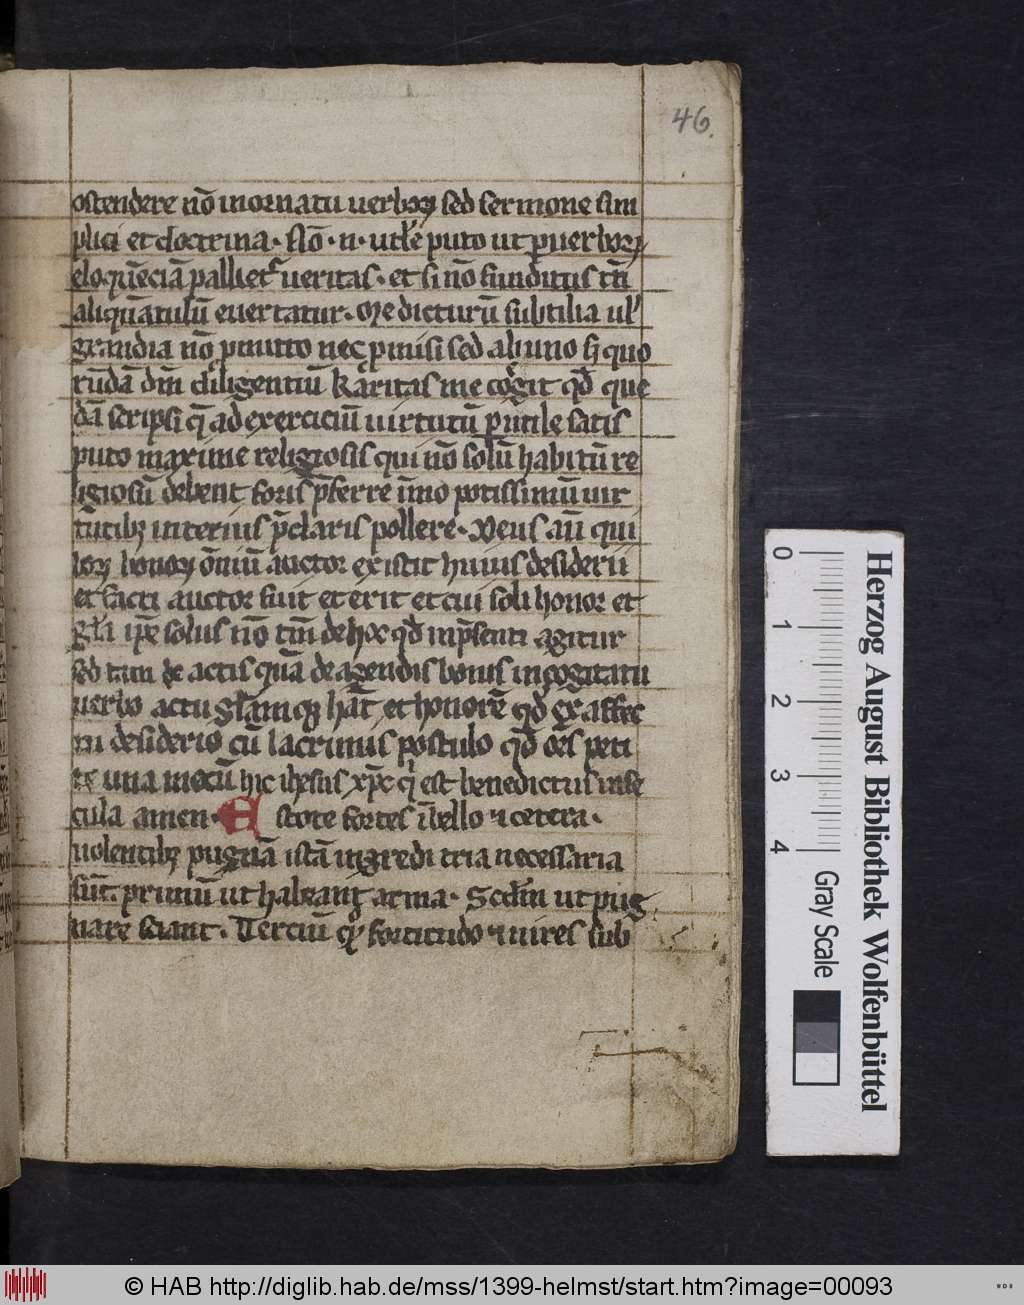 46.
ostendere nō in ornatu uerboꝝ sed sermone sim
plici et doctrina · Nō · n · utile puto ut p uerboꝝ
eloquēciā palliet᷑ ueritas · et si nō funditus tn̄
aliquātulū euertatur · Me dicturū subtilia ul̓
grandia nō pmitto nec pmisi sed ab uno quo
rūdā dm̄ diligentiū karitas me cogit qd̄ que
dā scripsi ad exerciciū uirtutū utile satis
puto maxime religiosis qui nō solū habitū re
ligiosū debent foris p̄ferre īmo potissimū uir
tutibꝫ interius p̄claris pollere · Deus aū qui
bonoꝝ ōniū auctor existit huius desiderii
et facti auctor fuit et erit et cui soli honor et
gl̄a ip̄e solus nō tm̄ de hoc qd̄ in p̄senti agitur
sed tam de actis quā de agendis bonis in cogitatu
uerbo actu gl̄am hāt et honorē qd̄ ex affec
tu desiderio cū lacrimis postulo qd̄ oēs peti
te una mecū hic ihesus xp̄c q̄ est benedictus in se
cula amen · Estote fortes ī bello ⁊ cetera ·
uolentibꝫ pugnā istā ingredi tria necessaria
sūt · primū ut habeant arma · Scd̄m ut pug
nare sciant · Terciū fortitudo ⁊ uires sub
0
1
2
3
4
Herzog August Bibliothek Wolfenbüttel
Gray Scale
© HAB http://diglib.hab.de/mss/1399-helmst/start.htm?image=00093